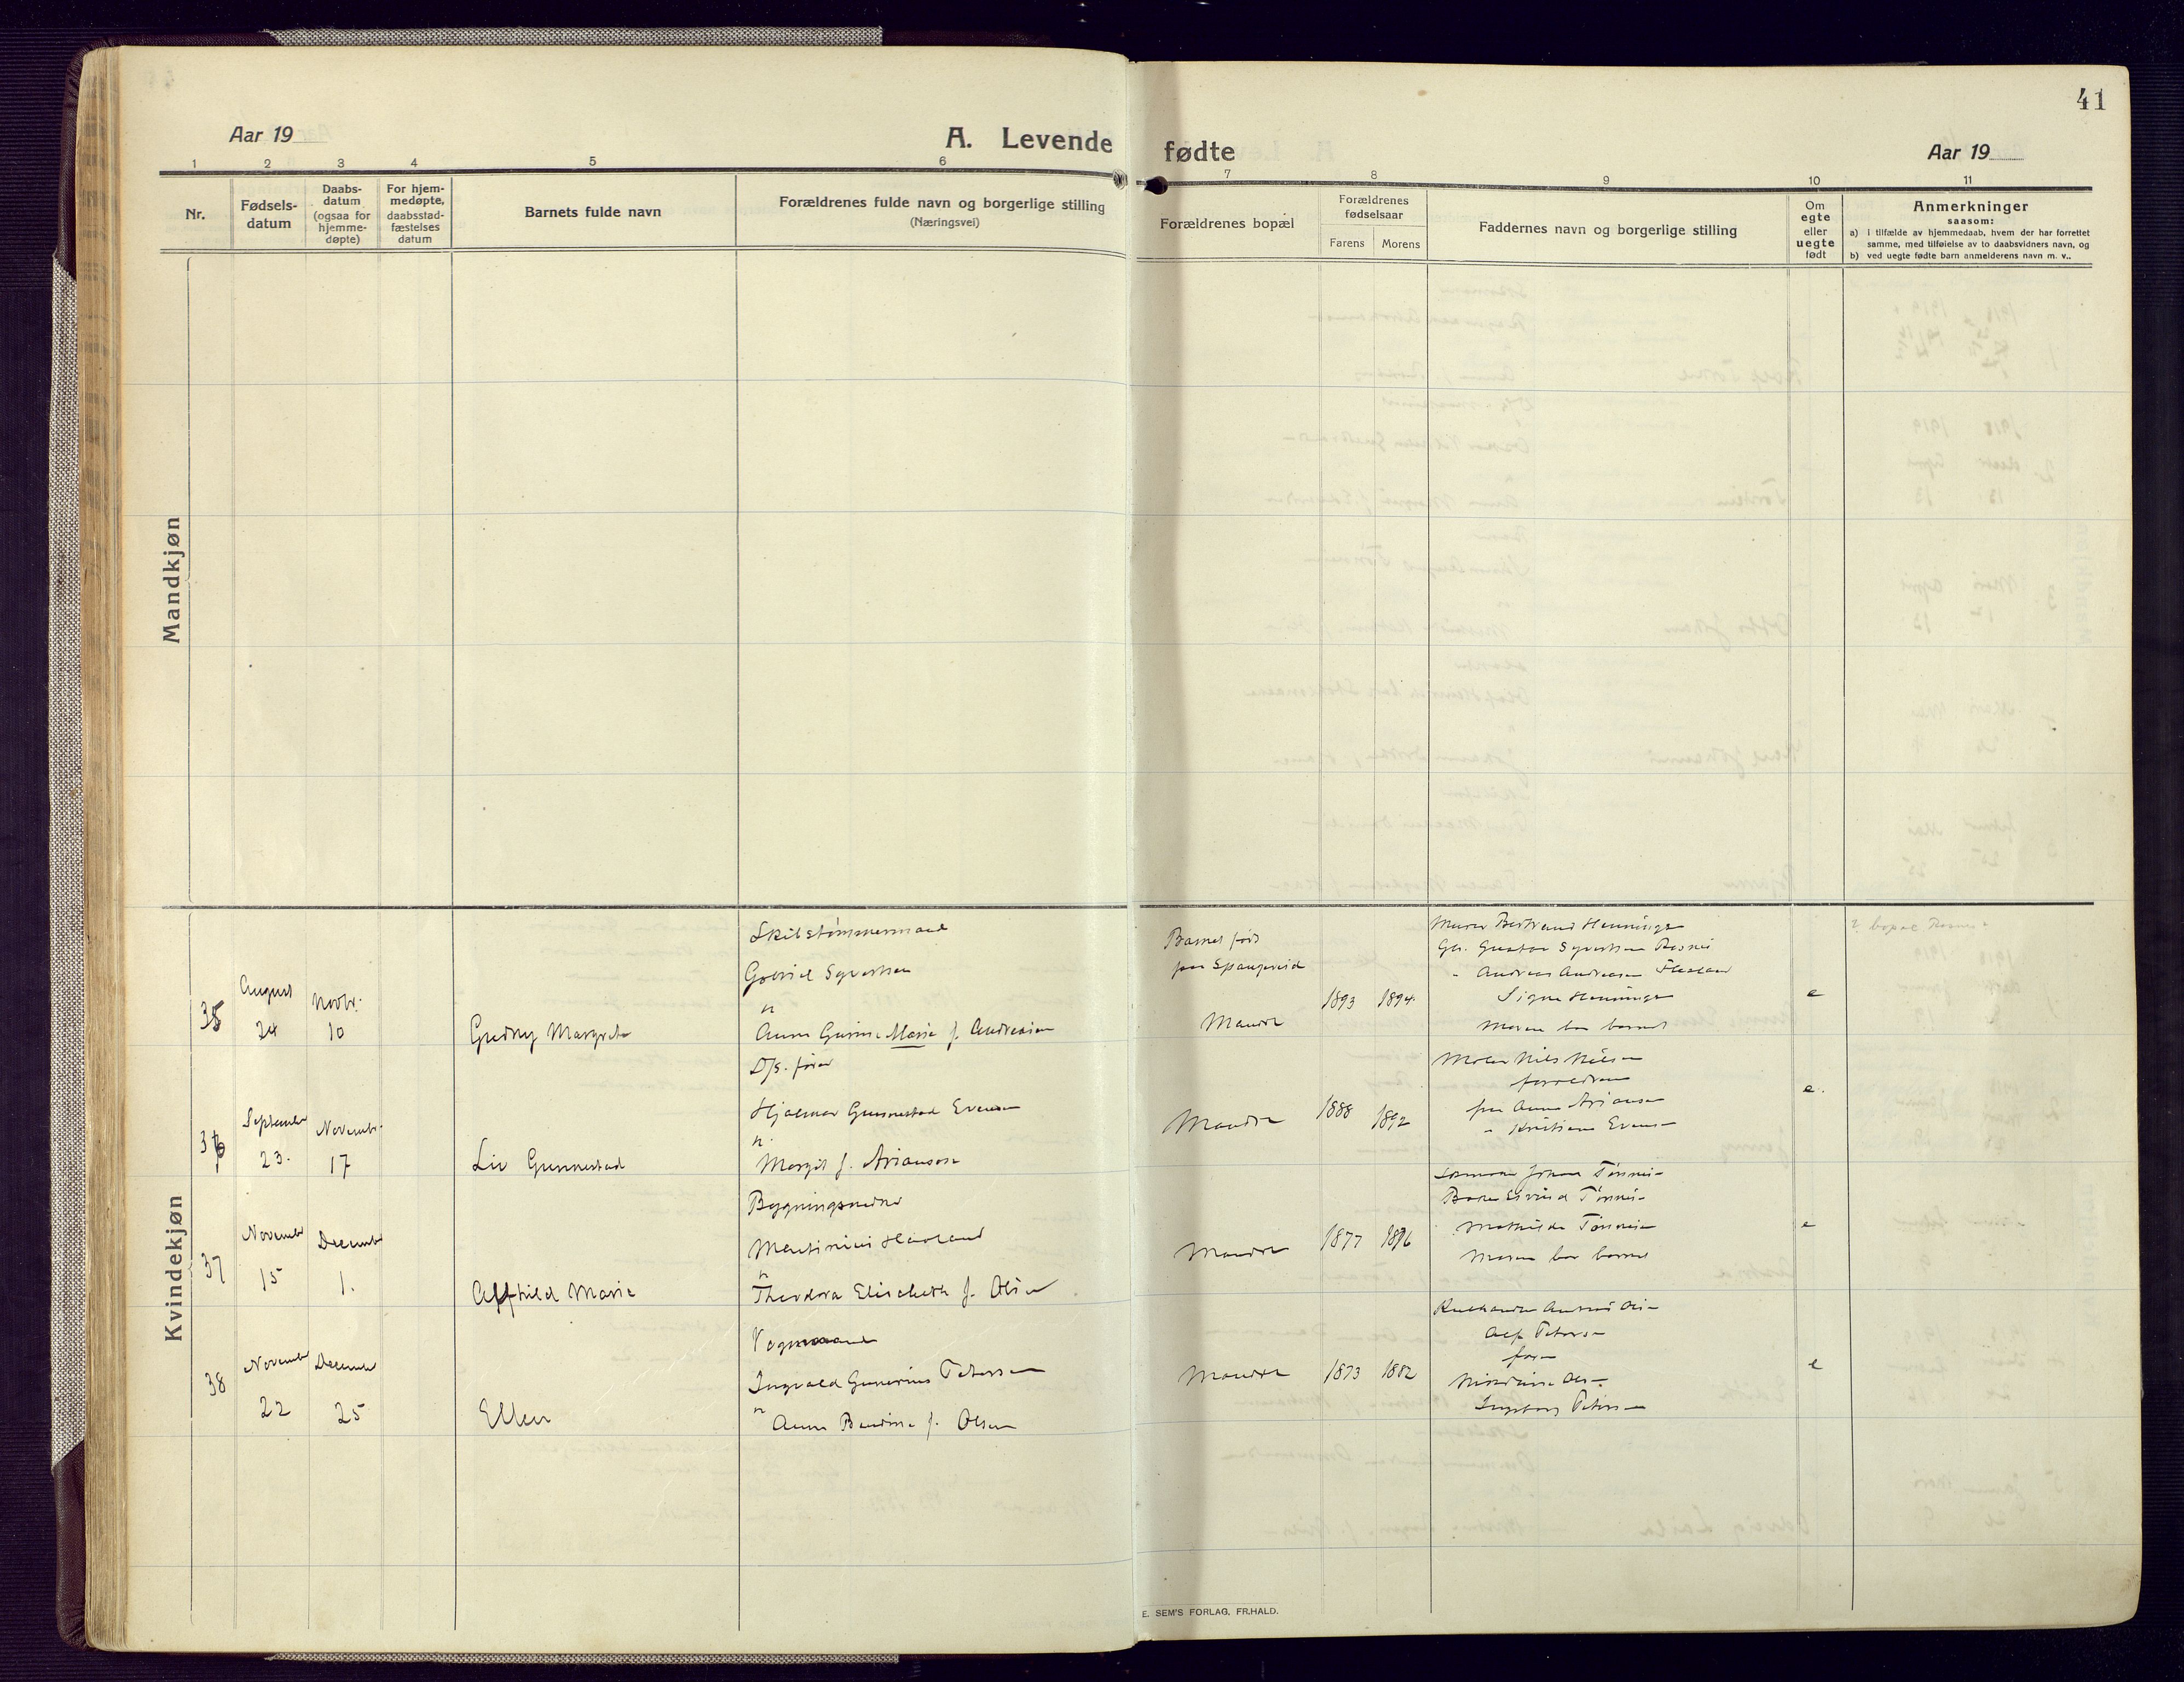 41
Aar 19
A. Levende
fødte
Aar 19
1 2 3 4 5 6
7 8 9 10 11
Nr.
Fødsels-
datum
Daabs-
datum
(ogsaa for
hjemme-
døpte)
For hjem-
medøpte,
daabsstad-
fæstelses
datum
Barnets fulde navn
Forældrenes fulde navn og borgerlige stilling
(Næringsvei)
Forældrenes bopæl
Forældrenes
fødselsaar
Farens Morens
Faddernes navn og borgerlige stilling
Om
egte
eller
uegte
født
Anmerkninger
saasom:
a) i tilfælde av hjemmedaab, hvem der har forrettet
samme, med tilføielse av to daabsvidners navn, og
b) ved uegte fødte barn anmelderens navn m. v..
Mandkjøn
Kvindekjøn
35
August
24
Novbr.
10
Gudny Margrete
Skibstømmermand
Gabriel Syvertsen
Anna Gurine Marie f. Andreassen
Barnet født
paa Spangereid
Mandal
1893 1894
Murer Bertrand Henninge
Gustav Syvertsen
Andreas Andreassen
Signe Henninge
Moren bar barnet
e
36
September
23.
November
17
Liv Gunnestad
D/s. fører
Hjalmar Gunnestad Evensen
Margit f. Arianson
Mandal
1888 1892
Maler Nils Nilsen
forældrene
fru Anna Arianson
" Kristiane Evensen
e.
37
November
15
December
1.
Alfhild Marie
Bygningssnedker
Martinius Haaland
Theodora Elisabeth f. Olsen
Mandal
1877 1896
Johan Tønnesen
Eivind Tønnesen
Mathilde Tønnesen
Moren bar barnet
e
38
November
22
December
25
Ellen
Vognmand
Ingvald Gunerius Petersen
Anna Bendine f. Olsen
Mandal
1873 1882
Alf Petersen
faren
Ingeborg Petersen
e
E. SEM'S FORLAG, FR.HALD.